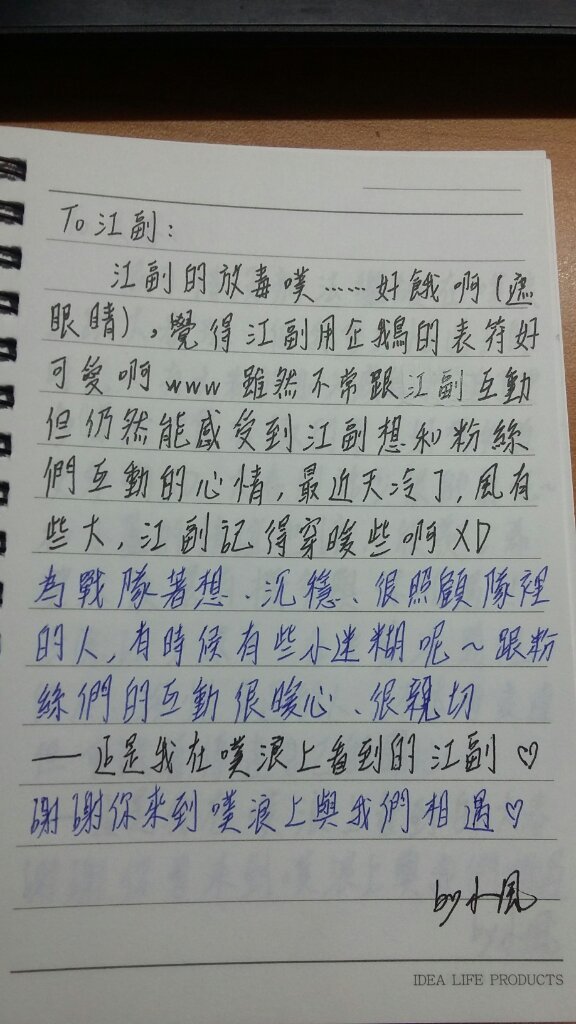 To 江副:
江副的放毒噗……好餓啊(遮
眼睛)，覺得江副用企鵝的表符好
可愛啊 www 雖然不常跟江副互動
但仍然能感受到江副想和粉絲
們互動的心情，最近天冷了，風有
些大，江副記得穿暖些啊 XD
為戰隊著想、沉穩、很照顧隊裡
的人，有時候有些小迷糊呢～跟粉
絲們的互動很暖心、很親切
——這是我在噗浪上看到的江副♡
謝謝你來到噗浪上與我們相遇♡
by 小風
IDEA LIFE PRODUCTS